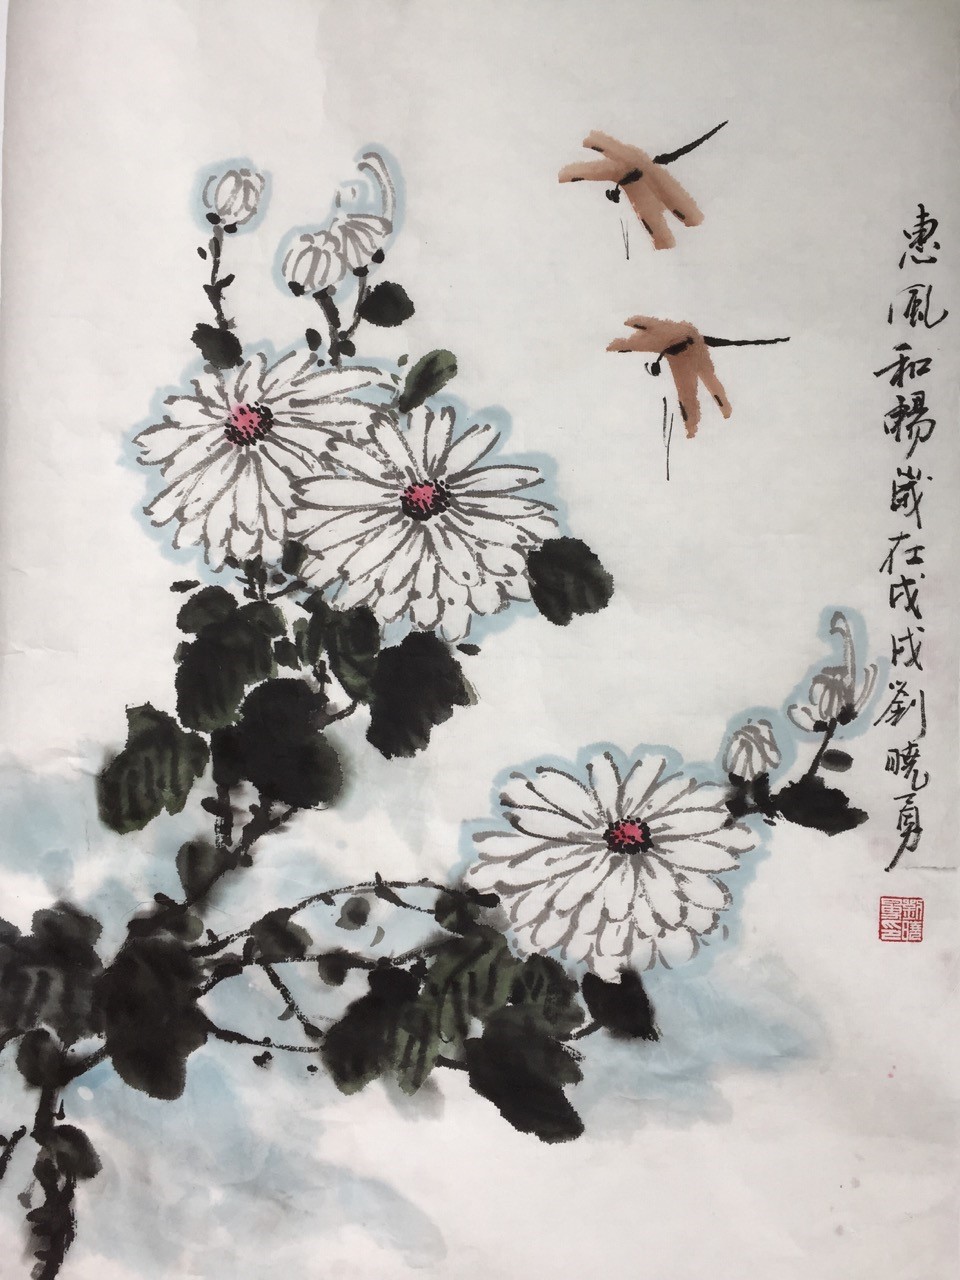 惠風和暢歲在戊戌劉曉勇
劉曉
勇印